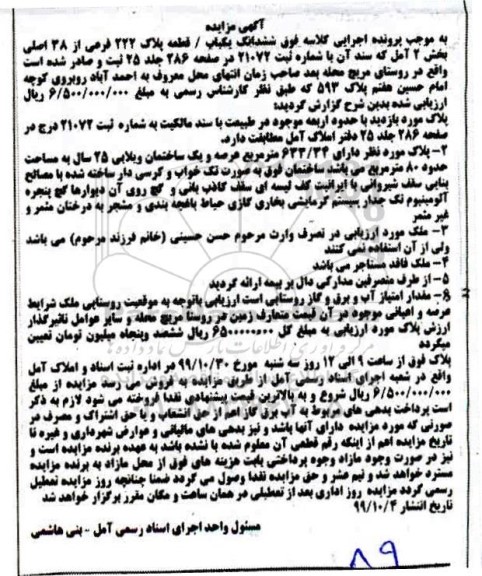 آگهی مزایده
به موجب پرونده اجرایی کلاسه فوق ششدانگ یکباب / قطعه پلاک ۲۲۲ فرعی از ۳۸ اصلی
بخش ۲ آمل که سند آن با شماره ثبت ۲۱۰۷۲ در صفحه ۲۸۶ جلد ۲۵ ثبت و صادر شده است
واقع در روستای مریج محله بعد صاحب زمان انتهای محل معروف به احمد آباد روبروی کوچه
امام حسین هفتم پلاک ۵۹۳ که طبق نظر کارشناس رسمی به مبلغ ۶/۵۰۰/۰۰۰/۰۰۰ ریال
ارزیابی شده بدین شرح گزارش گردید؛
پلاک مورد بازدید با حدود اربعه موجود در طبیعت با سند مالکیت به شماره ثبت ۲۱۰۷۲ درج در
صفحه ۲۸۶ جلد ۲۵ دفتر املاک آمل مطابقت دارد.
۲- پلاک مورد نظر دارای ۶۳۳/۳۴ مترمربع عرصه و یک ساختمان ویلایی ۲۵ سال به مساحت
حدود ۸۰ مترمربع می باشد ساختمان فوق به صورت تک خواب و کرسی دار ساخته شده با مصالح
بنایی سقف شیروانی با ایرانیت کف لیسه ای سقف کاذب بانی و گچ روی آن دیوارها گچ پنجره
آلومینیوم تک جدار سیستم گرمایشی بخاری گازی حیاط باغچه بندی و مشجر به درختان مثمر و
غیر مثمر
۳- ملک مورد ارزیابی در تصرف وارث مرحوم حسن حسینی (خانم فرزند مرحوم) می باشد
ولی از آن استفاده نمی کنند
۴- ملک فاقد مستاجر می باشد
۵- از طرف متصرفین مدارکی دال بر بیمه ارائه گردید
۶- مقدار امتیاز آب و برق و گاز روستایی است ارزیابی باتوجه به موقعیت روستایی ملک شرایط
عرصه و اعیانی موجود در آن قیمت متعارف زمین در روستا مریج محله و سایر عوامل تاثیرگذار
ارزش پلاک مورد ارزیابی به مبلغ کل ۶۵۰۰۰۰۰۰۰۰ ریال ششصد وپنجاه میلیون تومان تعیین
میگردد
پلاک فوق از ساعت ۹ الی ۱۲ روز سه شنبه مورخ ۹۹/۱۰/۳۰ در اداره ثبت اسناد و املاک آمل
واقع در شعبه اجرای اسناد رسمی آمل از طریق مزایده به فروش میرسد مزایده از مبلغ
۶/۵۰۰/۰۰۰/۰۰۰ ریال شروع و به بالاترین قیمت پیشنهادی نقدا فروخته می شود لازم به ذکر
است پرداخت بدهی های مربوط به آب برق گاز اعم از حق انشعاب و یا حق اشتراک و مصرف در
صورتی که مورد مزایده دارای آنها باشد و نیز بدهی های مالیاتی و عوارض شهرداری و غیره تا
تاریخ مزایده اعم از اینکه رقم قطعی آن معلوم شده یا نشده باشد به عهده برنده مزایده است و
نیز در صورت وجود مازاد وجوه پرداختی بابت هزینه های فوق از محل مازاد به برنده مزایده
مسترد خواهد شد و نیم عشر و حق مزایده نقدا وصول می گردد ضمنا چنانچه روز مزایده تعطیل
رسمی گردد مزایده روز اداری بعد از تعطیلی در همان ساعت و مکان مقرر برگزار خواهد شد
تاریخ انتشار ۹۹/۱۰/۴
مسئول واحد اجرای اسناد رسمی آمل - بنی هاشمی
۸۹